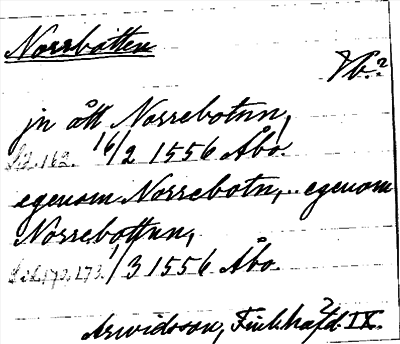 Norrbotten
Vb.?
jn ått Norrebotnn,
Sid. 162. 16/2 1556 Åbo.
egenom Norrebotn, .. egenom
Norrebottnn,
Sid. 172. 173. 1/3 1556 Åbo.
Arwidsson, Finl. häfd. IX.